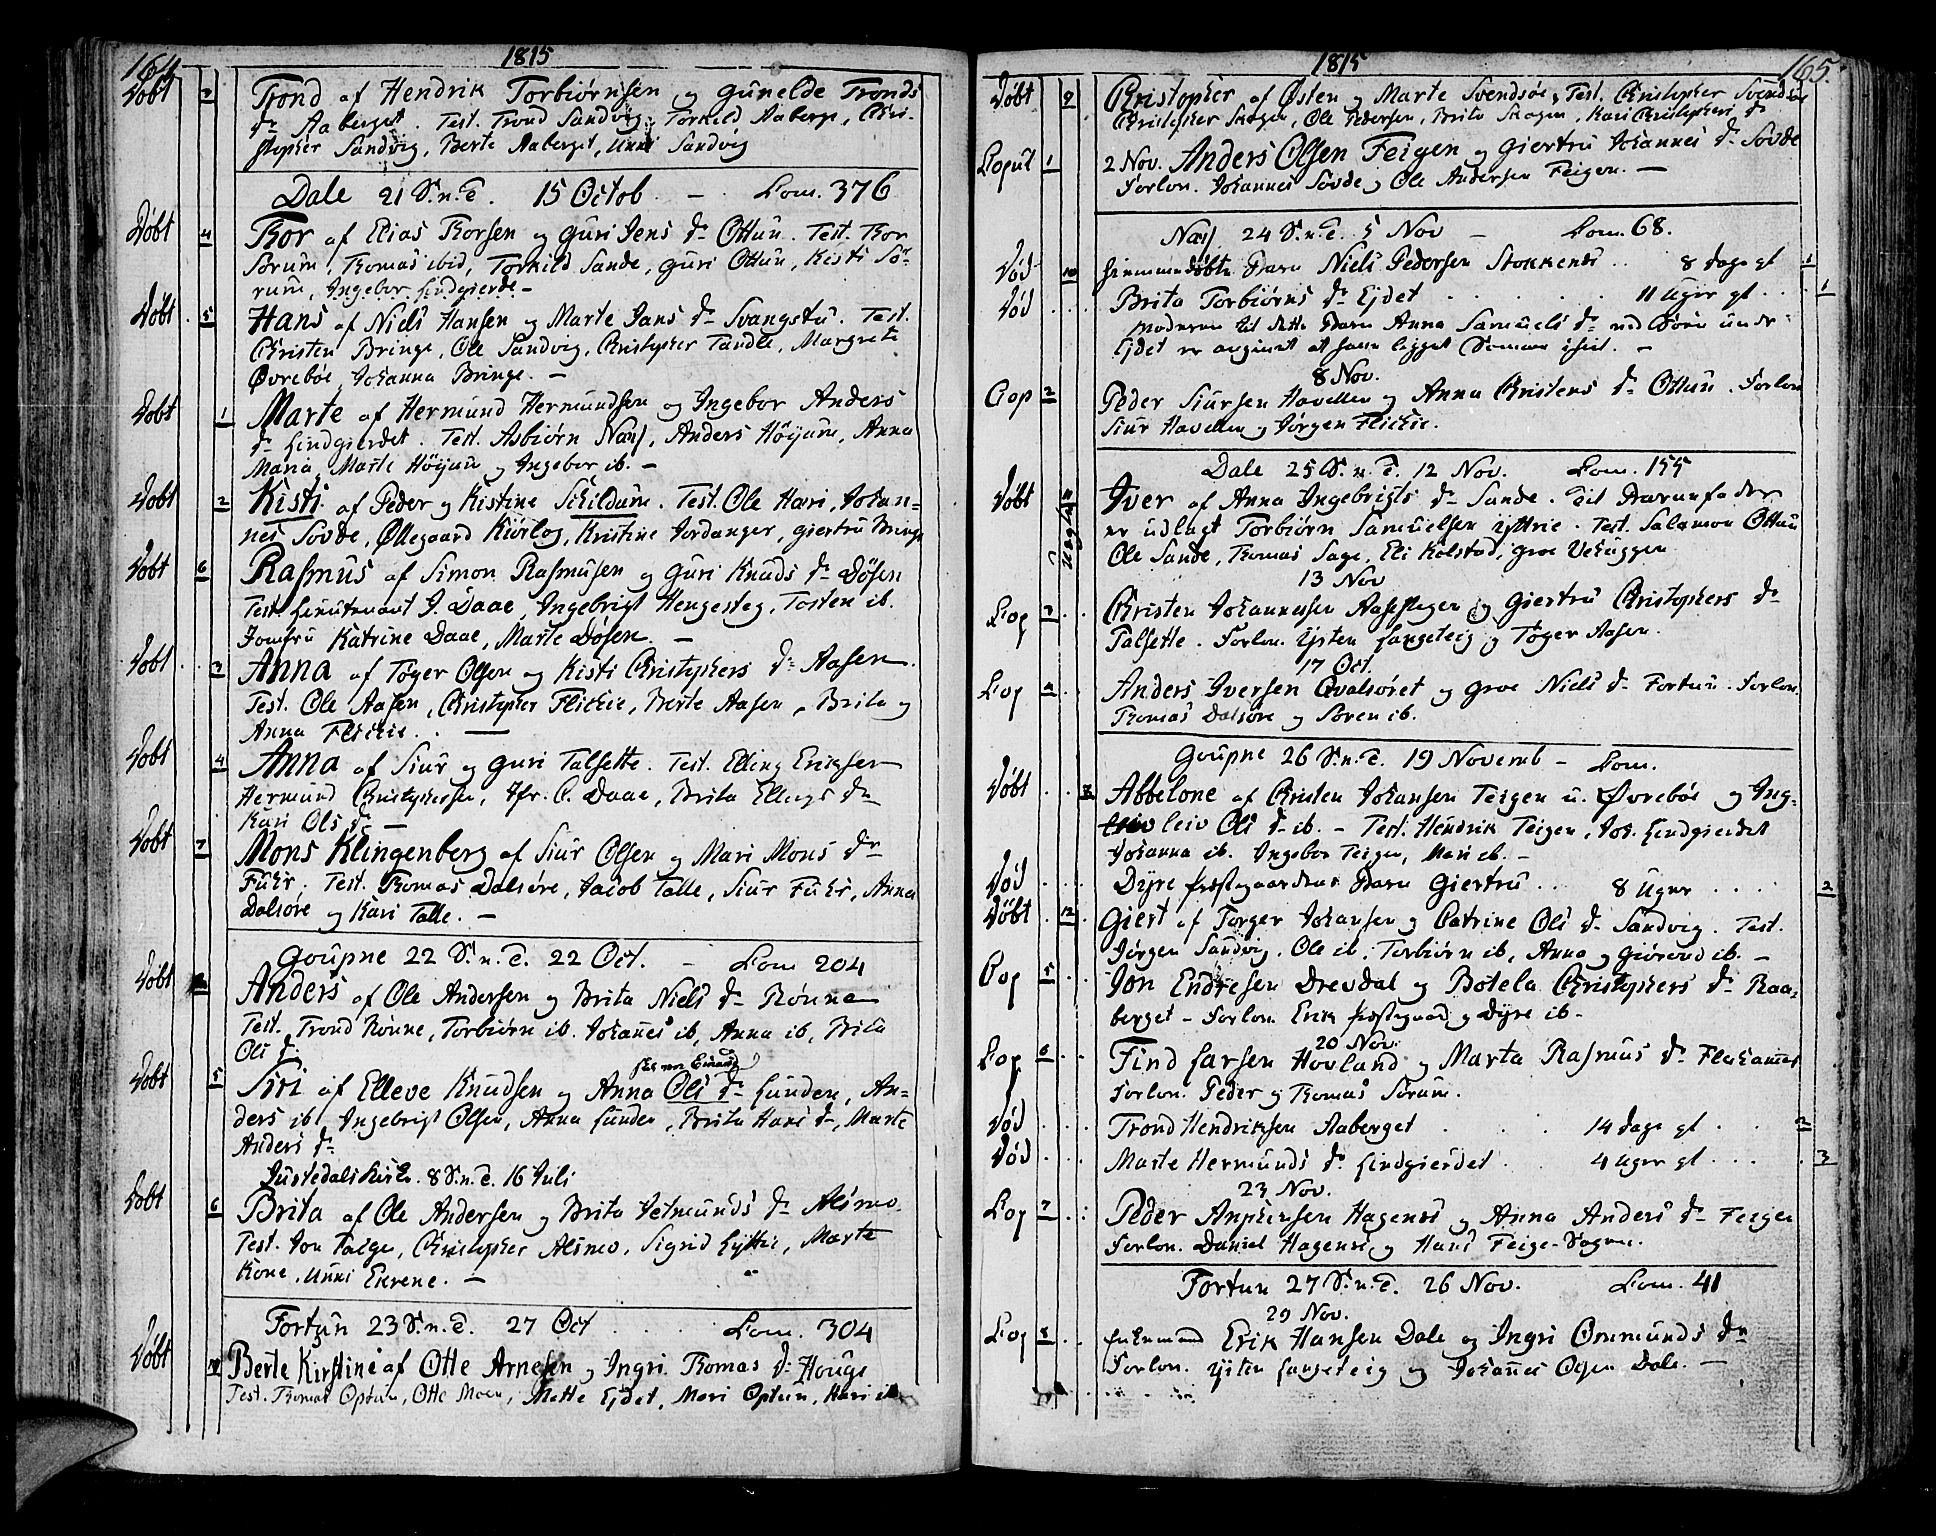 164
1815
Døbt 3 Trond af Hendrik Torbiørnsen og Gunelde Tronds
Dr Aaberget. Test. Trond Sandvig, Torkild Aaberge, Chri-
stopher Sandvig, Berte Aaberget, Unni Sandvig
Dale 21 S. n. T. 15 Octob. - Com. 376
Døbt 4 Thor af Elias Thorsen og Guri Jens Dr Ottun. Test. Thor
Sørum, Thomas ibid, Torkild Sande, Guri Ottun, Kisti Sö-
rum, Ingebor Lindgierde -
Døbt 5 Hans af Niels Hansen og Marte Jans Dr Svangstu. Test.
Christen Bringe, Ole Sandvig, Christopher Tandle, Margrete
Øvrebøe, Johanna Bringe. -
Døbt 1 Marte af Hermund Hermundsen og Ingebor Anders
Dr Lindgierdet. Test. Asbiørn Næss, Anders Höyum, Anna
Maria, Marte Höyum og Ingebor ib. -
Døbt 2 Kisti af Peder og Kistine Schildum. Test. Ole Hari, Johan-
nes Sovde, Øllegaard Kiörlog, Kristine Jordanger, Giertru Bringe
Døbt 6 Rasmus af Simon Rasmusen og Guri Knuds Dr Døsen
Test. Lieutenant J. Daae, Ingebrigt Hengesteg, Tosten ib.
Jomfru Katrine Daae, Marte Døsen. -
Døbt 3 Anna af Tøger Olsen og Kisti Christophers Dr Aasen.
Test. Ole Aasen, Christopher Flickie, Berte Aasen, Brita og
Anna Flickie. -
Døbt 4 Anna af Siur og Guri Talsette. Test. Elling Eriksen
Hermund Christophersen, Jfr. C. Daae, Brita Ellings Dr
Kari Ols Dr -
Døbt 7 Mons Klingenberg af Siur Olsen og Mari Mons Dr
Fuhr. Test. Thomas Dalsøre, Jacob Talle, Siur Fuhr, Anna
Dalsøre og Kari Talle. -
Goupne 22 S. n. T. 22 Oct. - Com 204
Døbt Anders af Ole Andersen og Brita Niels Dr Rønne
Test. Trond Rønne, Torbiørn ib. Johannes ib, Anna ib, Brita
Ols Dr
Døbt 5 Siri af Elleve Knudsen og Anna Ols Dr Lunden, An-
ders ib. Ingebrigt Olsen, Anna Lunden, Brita Hans Dr, Marte
Anders Dr
Justedals Kirke. 8 S. n. T. 16 Juli
Døbt 6 Brita af Ole Andersen og Brita Jetmunds Dr Alsmo.
Test. Jon Faige, Christopher Alsmo, Sigrid Lyttie, Marte
Kone, Unni Ekrene. -
Fortun 23 S. n. T. 27 Oct . . . . Com. 304
Døbt 10 Berte Kirstine af Otte Arnesen og Ingri Thomas Dr Houge
Test. Thomas Optun, Otte Moen, Mette Ejdet, Mari Optun, Kari ib
1815
165.
Døbt 9 Christopher af Østen og Marte Svendsøe, Test. Christopher Svendsøe
Christopher Skagen, Ole Pedersen, Brita Skagen, Kari Christophers Dr
Copul 1 2 Nov. Anders Olsen Feigen og Giertru Johannes Dr Sovde
Forlon. Johannes Sovde og Ole Andersen Feigen. -
Næss 24 S. n. T. 5 Nov - Com. 68.
Død 10 hiemmedøbte Barn Niels Pedersen Stokkenes . . 8 Dage gl 1
Død Brita Torbiørns Dr Ejdet . . . . . . 11 Uger gl . . . 1
Moderen til dette Barn Anna Samuels Dr
Cop 2 8 Nov.
Peder Siursen Havellen og Anna Christens Dr Ottun. Forlon
Siur Havellen og Jørgen Flickie.
Dale 25 S. n. T. 12 Nov. Com. 155
Døbt 11 Uægte Iver af Anna Ingebrigts Dr Sande. Til Barnefader
er udlagt Torbiørn Samuelsen Yttrie. Test. Salamon Ottun
Ole Sande, Thomas Sage, Eli Kolstad, Groe
13 Nov
Cop 3 Christen Johannesen Aasesteger og Giertru Christophers Dr
Talsette. Forlon. Østen Langeteig og Tøger Aasen.
17 Oct.
Cop 4 Anders Iversen Qvalsøret og Groe Niels Dr Fortun. Forlon.
Thomas Dalsøre og Soren ib.
Goupne 26 S. n. T. 19 Novemb - Com.
Døbt 8 Abbelone af Christen Johansen Teigen u. Øvrebøe og Ing-
leiv Ols Dr ib. - Test. Hendrik Teigen, Joh. Lindgierdet
Johanna ib. Ingebor Teigen, Mari ib. -
Død Dyre Præstegaardens Barn Giertru . . 8 Uger . . . . 2
Døbt 12 Giert af Torger Johansen og Catrine Ols Dr Sandvig. Test.
Jørgen Sandvig, Ole ib. Torbiørn ib, Anna og Giørond ib. -
Cop 5 Jon Endresen Drevdal og Botela Christophers Dr Raa-
berget - Forlon. Erik Præstegaard og Dyre ib -
20 Nov.
Cop 6 Find Larsen Hovland og Marta Rasmus Dr
Forlon. Peder og Thomas Sørum.
Død Trond Hendriksen Aaberget . . . 14 Dage gl . . 2
Død Marte Hermunds Dr Lindgierdet . . 4 Uger gl . . . 3
23 Nov.
Cop 7 Peder Anphinsen Hagenes og Anna Anders Dr Feigen
Forlon. Daniel Hagenes og Hans Feige-Vogen.
Fortun 27 S. n. T. 26 Nov. Com. 41
29 Nov.
Cop 8 Enkemand Erik Hansen Dale og Ingri Ommunds Dr
Forlon. Østen Langeteig og Johannes Olsen Dale. -